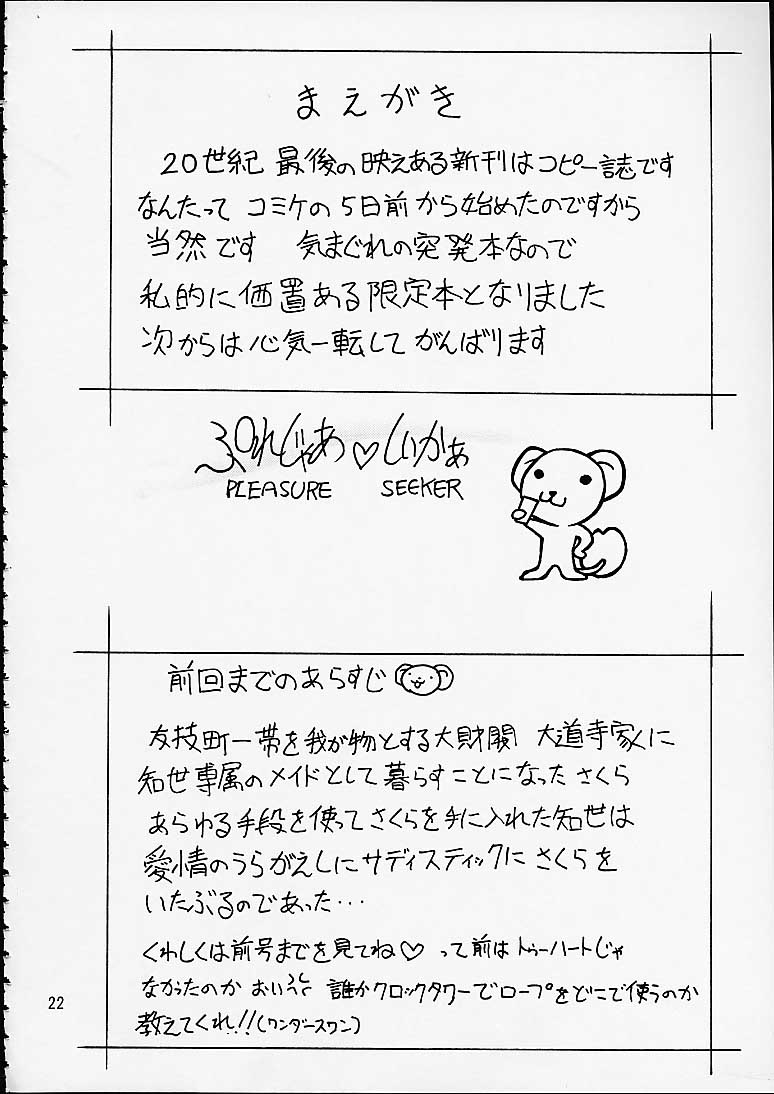 まえがき
20世紀 最後の映えある新刊はコピー誌です
なんたって コミケの5日前から始めたのですから
当然です 気まぐれの突発本なので
私的に価置ある限定本となりました
次からは心気一転してがんばります
ぷれじゃあ♡しぃかぁ
PLEASURE SEEKER
前回までのあらすじ
友技町一帯を我が物とする大財閥 大道寺家に
知世専属のメイドとして暮らすことになったさくら
あらゆる手段を使ってさくらを手に入れた知世は
愛情のうらがえしにサディスティックにさくらを
いたぶるのであった…
くわしくは前号までを見てね♡ って前はトゥーハートじゃ
なかったのか おいっ 誰かクロックタワーでロープをどこで使うのか
教えてくれ!!(ワンダースワン)
22